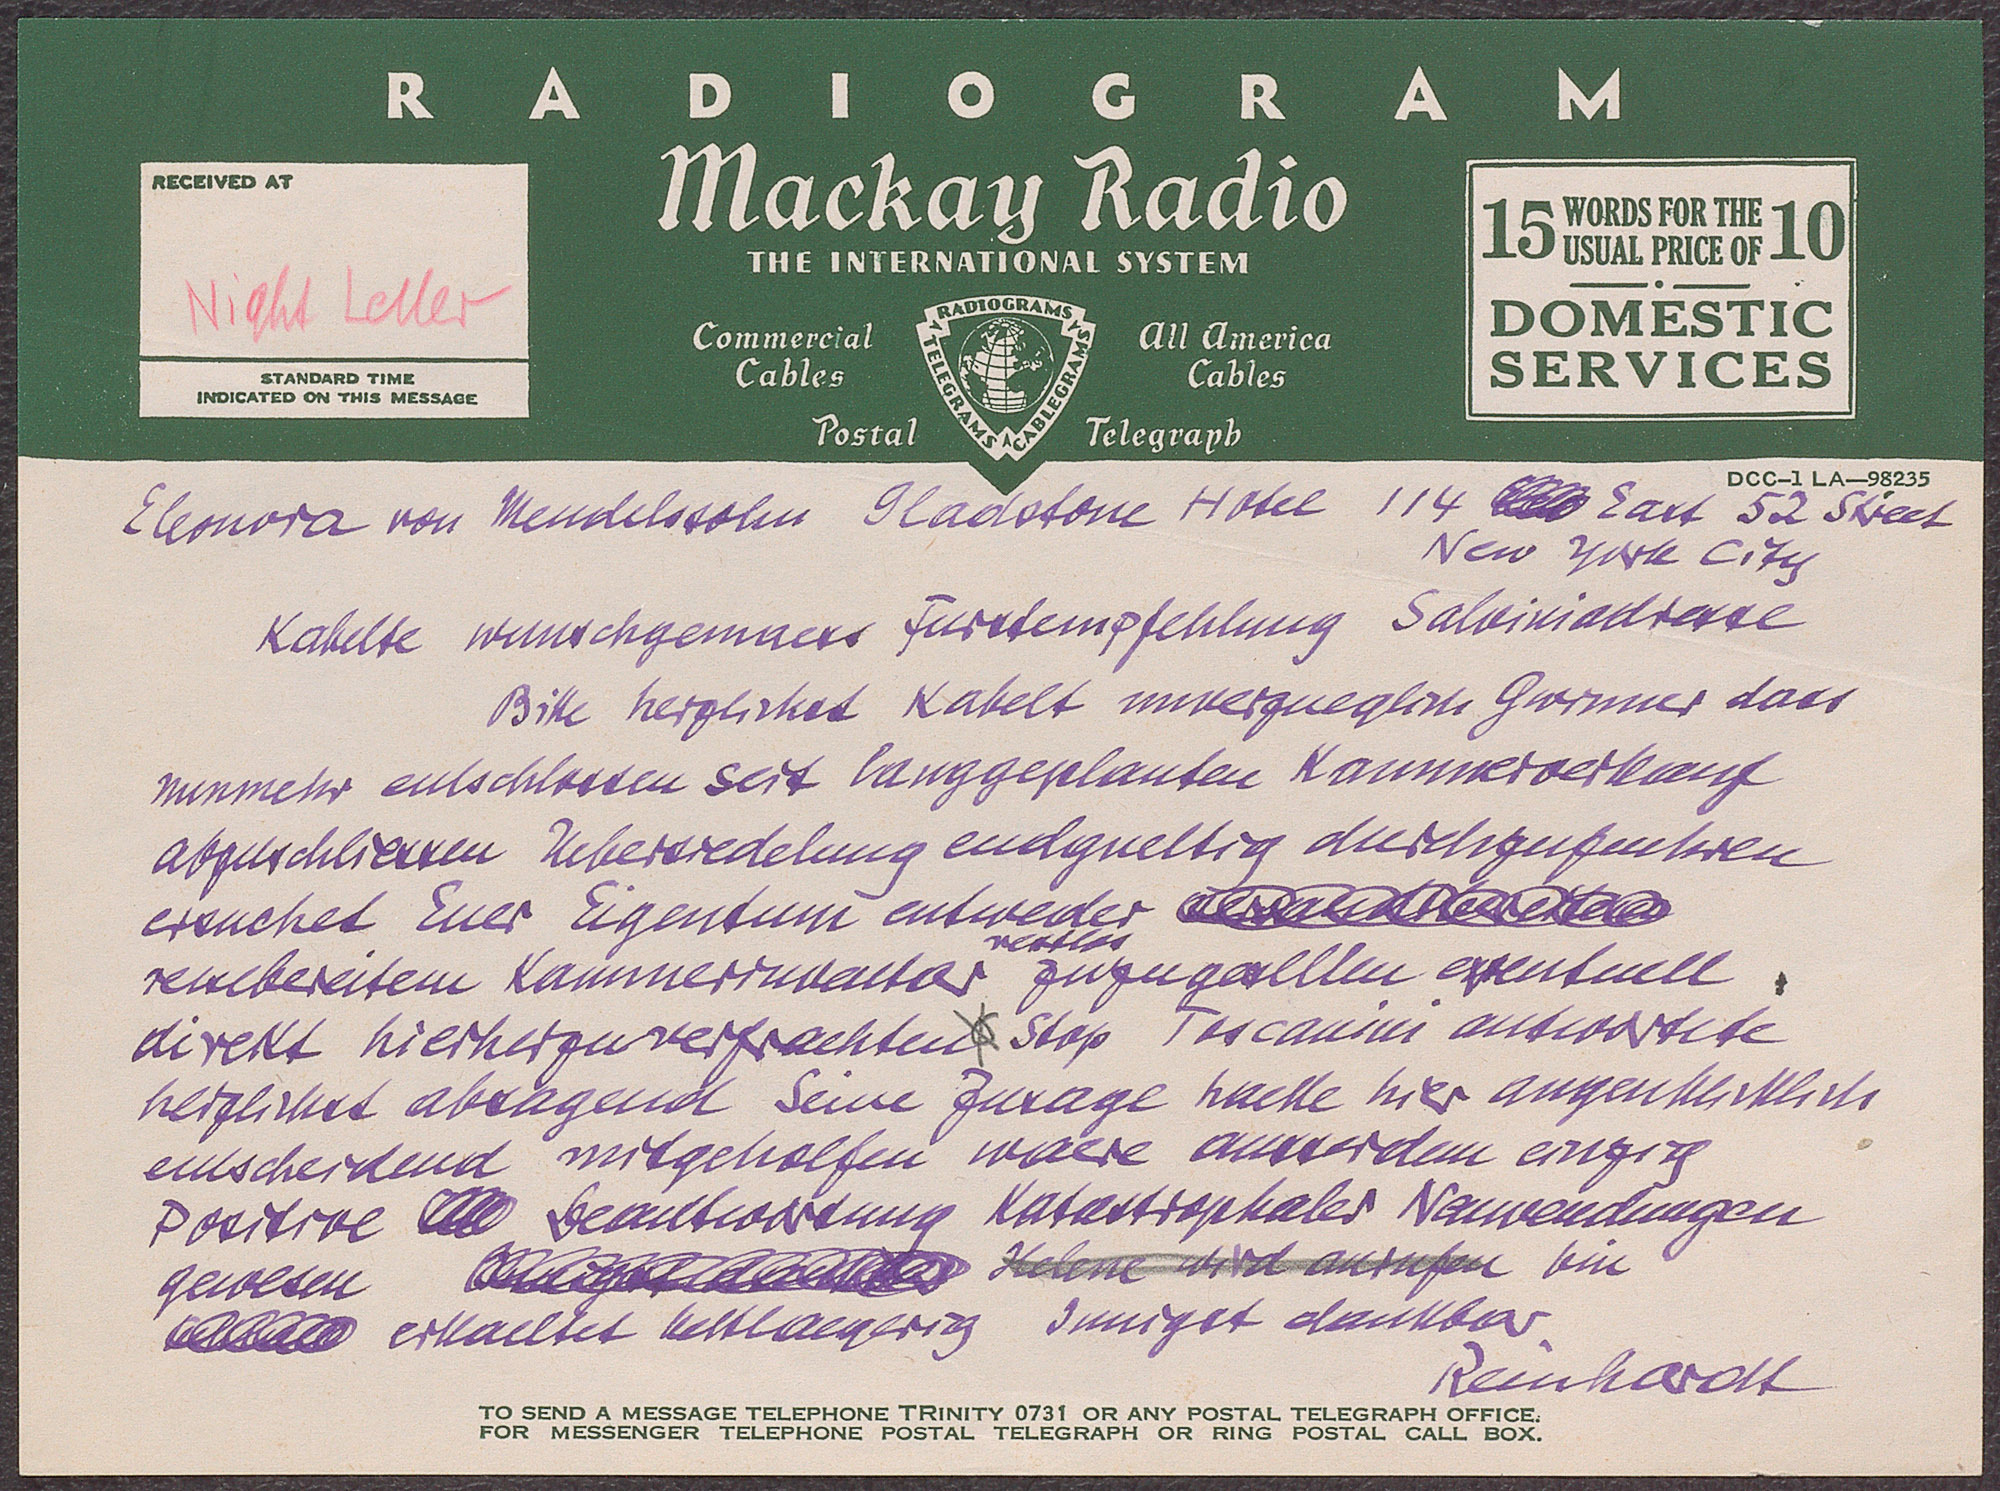 RADIOGRAM
Mackay Radio
THE INTERNATIONAL SYSTEM
RECEIVED AT
Night Letter
STANDARD TIME
INDICATED ON THIS MESSAGE
Commercial Cables
All America Cables
Postal Telegraph
RADIOGRAMS
TELEGRAMS
CABLEGRAMS
15 WORDS FOR THE USUAL PRICE OF 10
DOMESTIC
SERVICES
DCC-1 LA—98235
Eleonora von Mendelssohn Gladstone Hotel 114 East 52 Street
New York City
Kabelte wunschgemaess Furstempfehlung Salviniadresse
Bitte herzlichst Kabelt unverzueglich Gwinner dass
nunmehr entschlossen seit langgeplanten Kammerverkauf
abzuschliessen Uebersiedelung endgueltig durchzufuehren
ersuchet Euer Eigentum entweder
reisebereitem Kammerinventar restlos zuzugesellen eventuell
direkt hierherzuverfrachten Stop Toscanini antwortete
herzlichst absagend Seine Zusage haette hier augenblicklich
entscheidend mitgeholfen waere ausserdem einzig
Positive Beantwortung Katastrophaler Neuwendungen
gewesen Helene wird anrufen bin
erkaeltet bettlaegerig Innigst dankbar
Reinhardt
TO SEND A MESSAGE TELEPHONE TRINITY 0731 OR ANY POSTAL TELEGRAPH OFFICE.
FOR MESSENGER TELEPHONE POSTAL TELEGRAPH OR RING POSTAL CALL BOX.